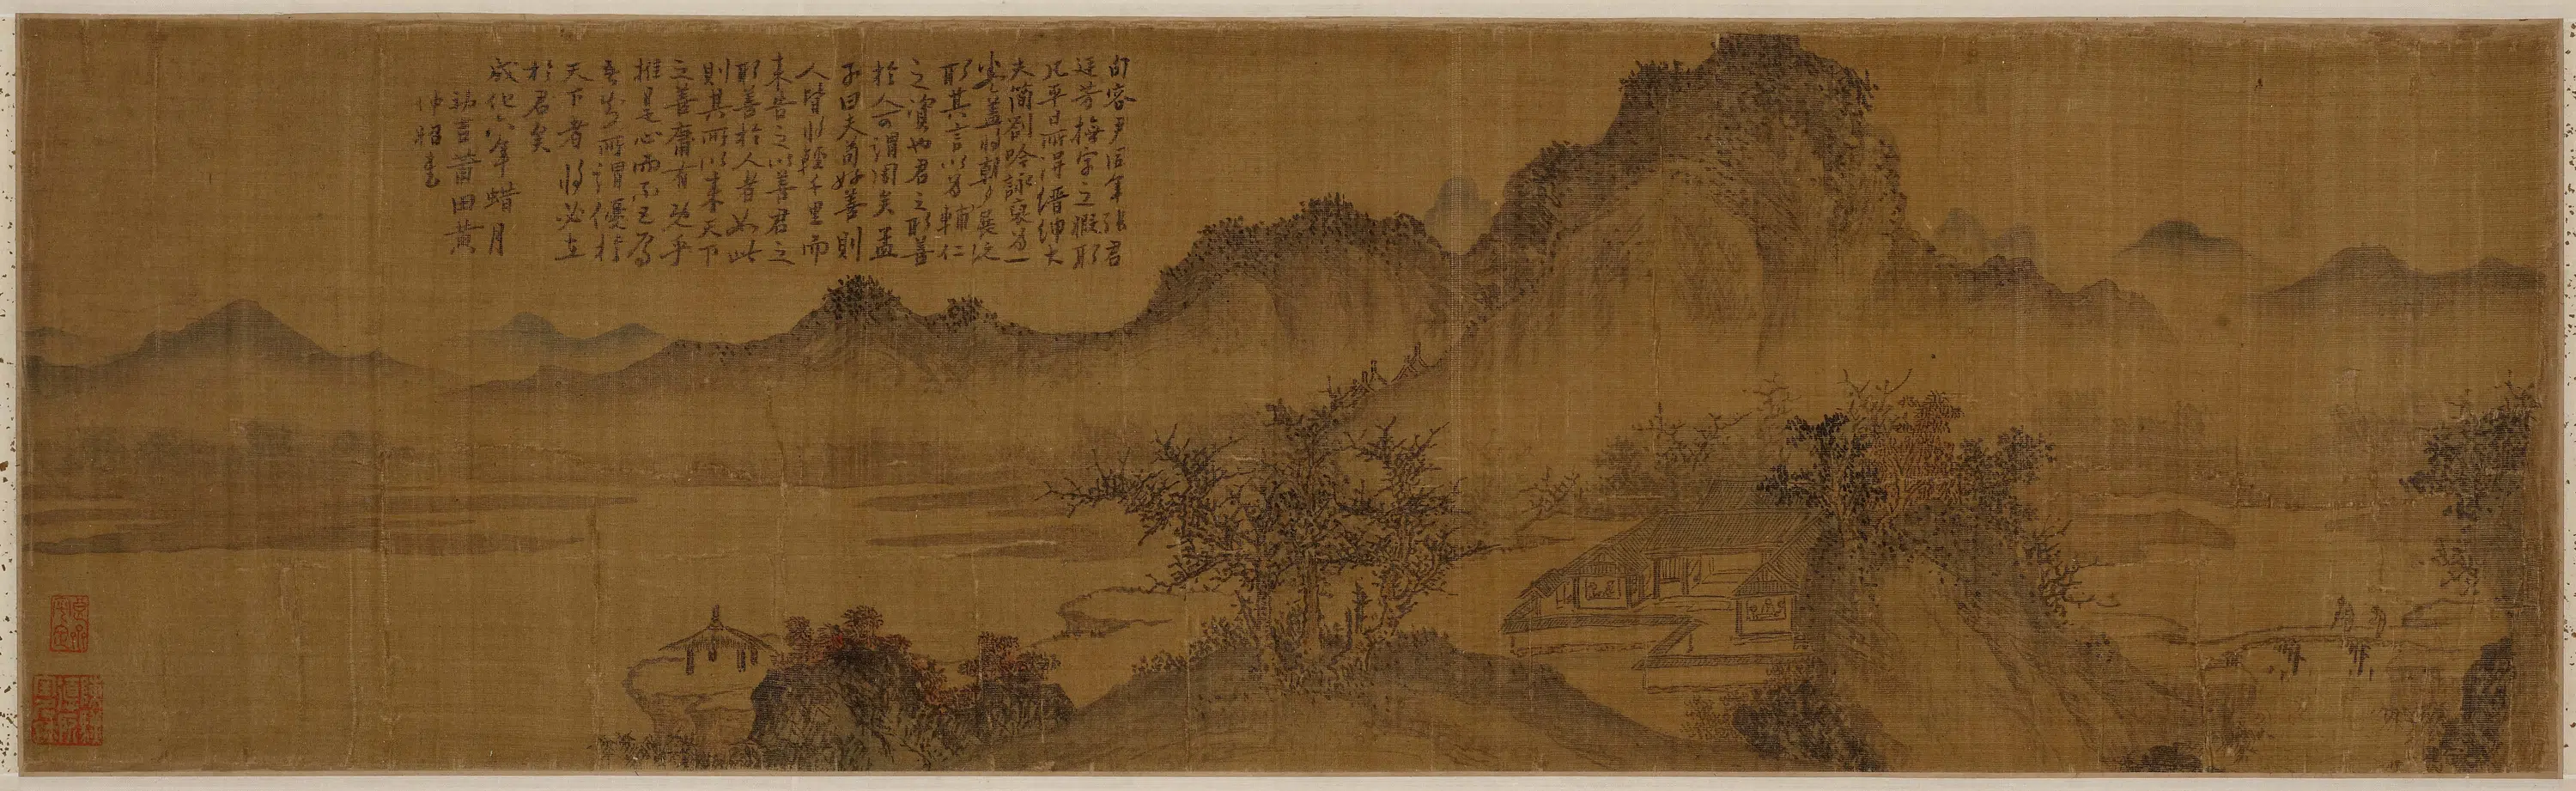 句容尹同年張君
廷芳撫字之暇取
凡平日所得縉紳大
夫簡劄吟詠裒為一
卷蓋將朝夕展玩
取其言以為輔仁
之資也君之取善
於人可謂周矣孟
子曰夫苟好善則
人皆將輕千里而
來告之以善君之
取善於人者如此
則其所以來天下
之善庸有既乎
推是心而不已焉
吾知所謂優於
天下者將必在
於君矣
成化六年蜡月
望吉莆田黃
仲昭書